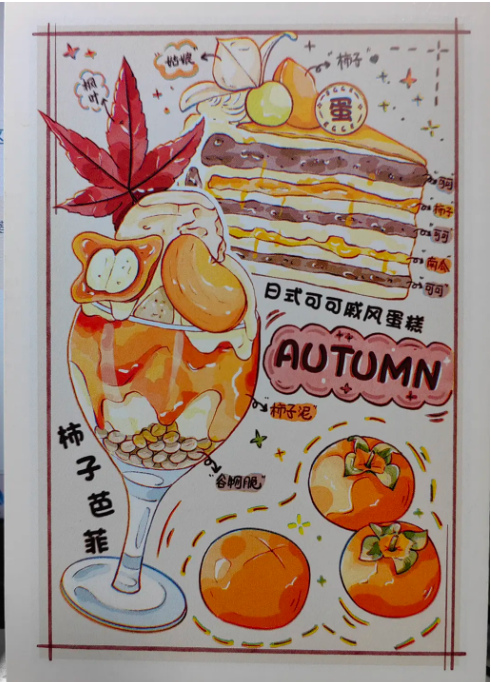 "姑娘"
"柿子"
枫叶
蛋
可可
柿子
可可
南瓜
可可
日式可可戚风蛋糕
AUTUMN
"柿子泥"
"谷物脆"
柿子芭菲